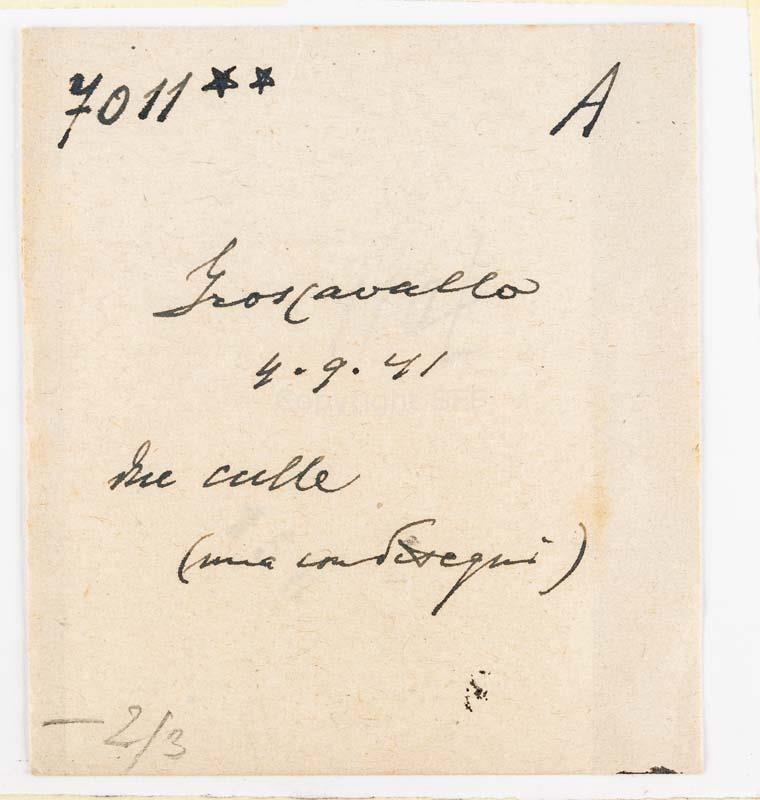 7011** A
Groscavallo
4.9.41
due culle
(una con disegni)
Copyright SFF
- 2/3